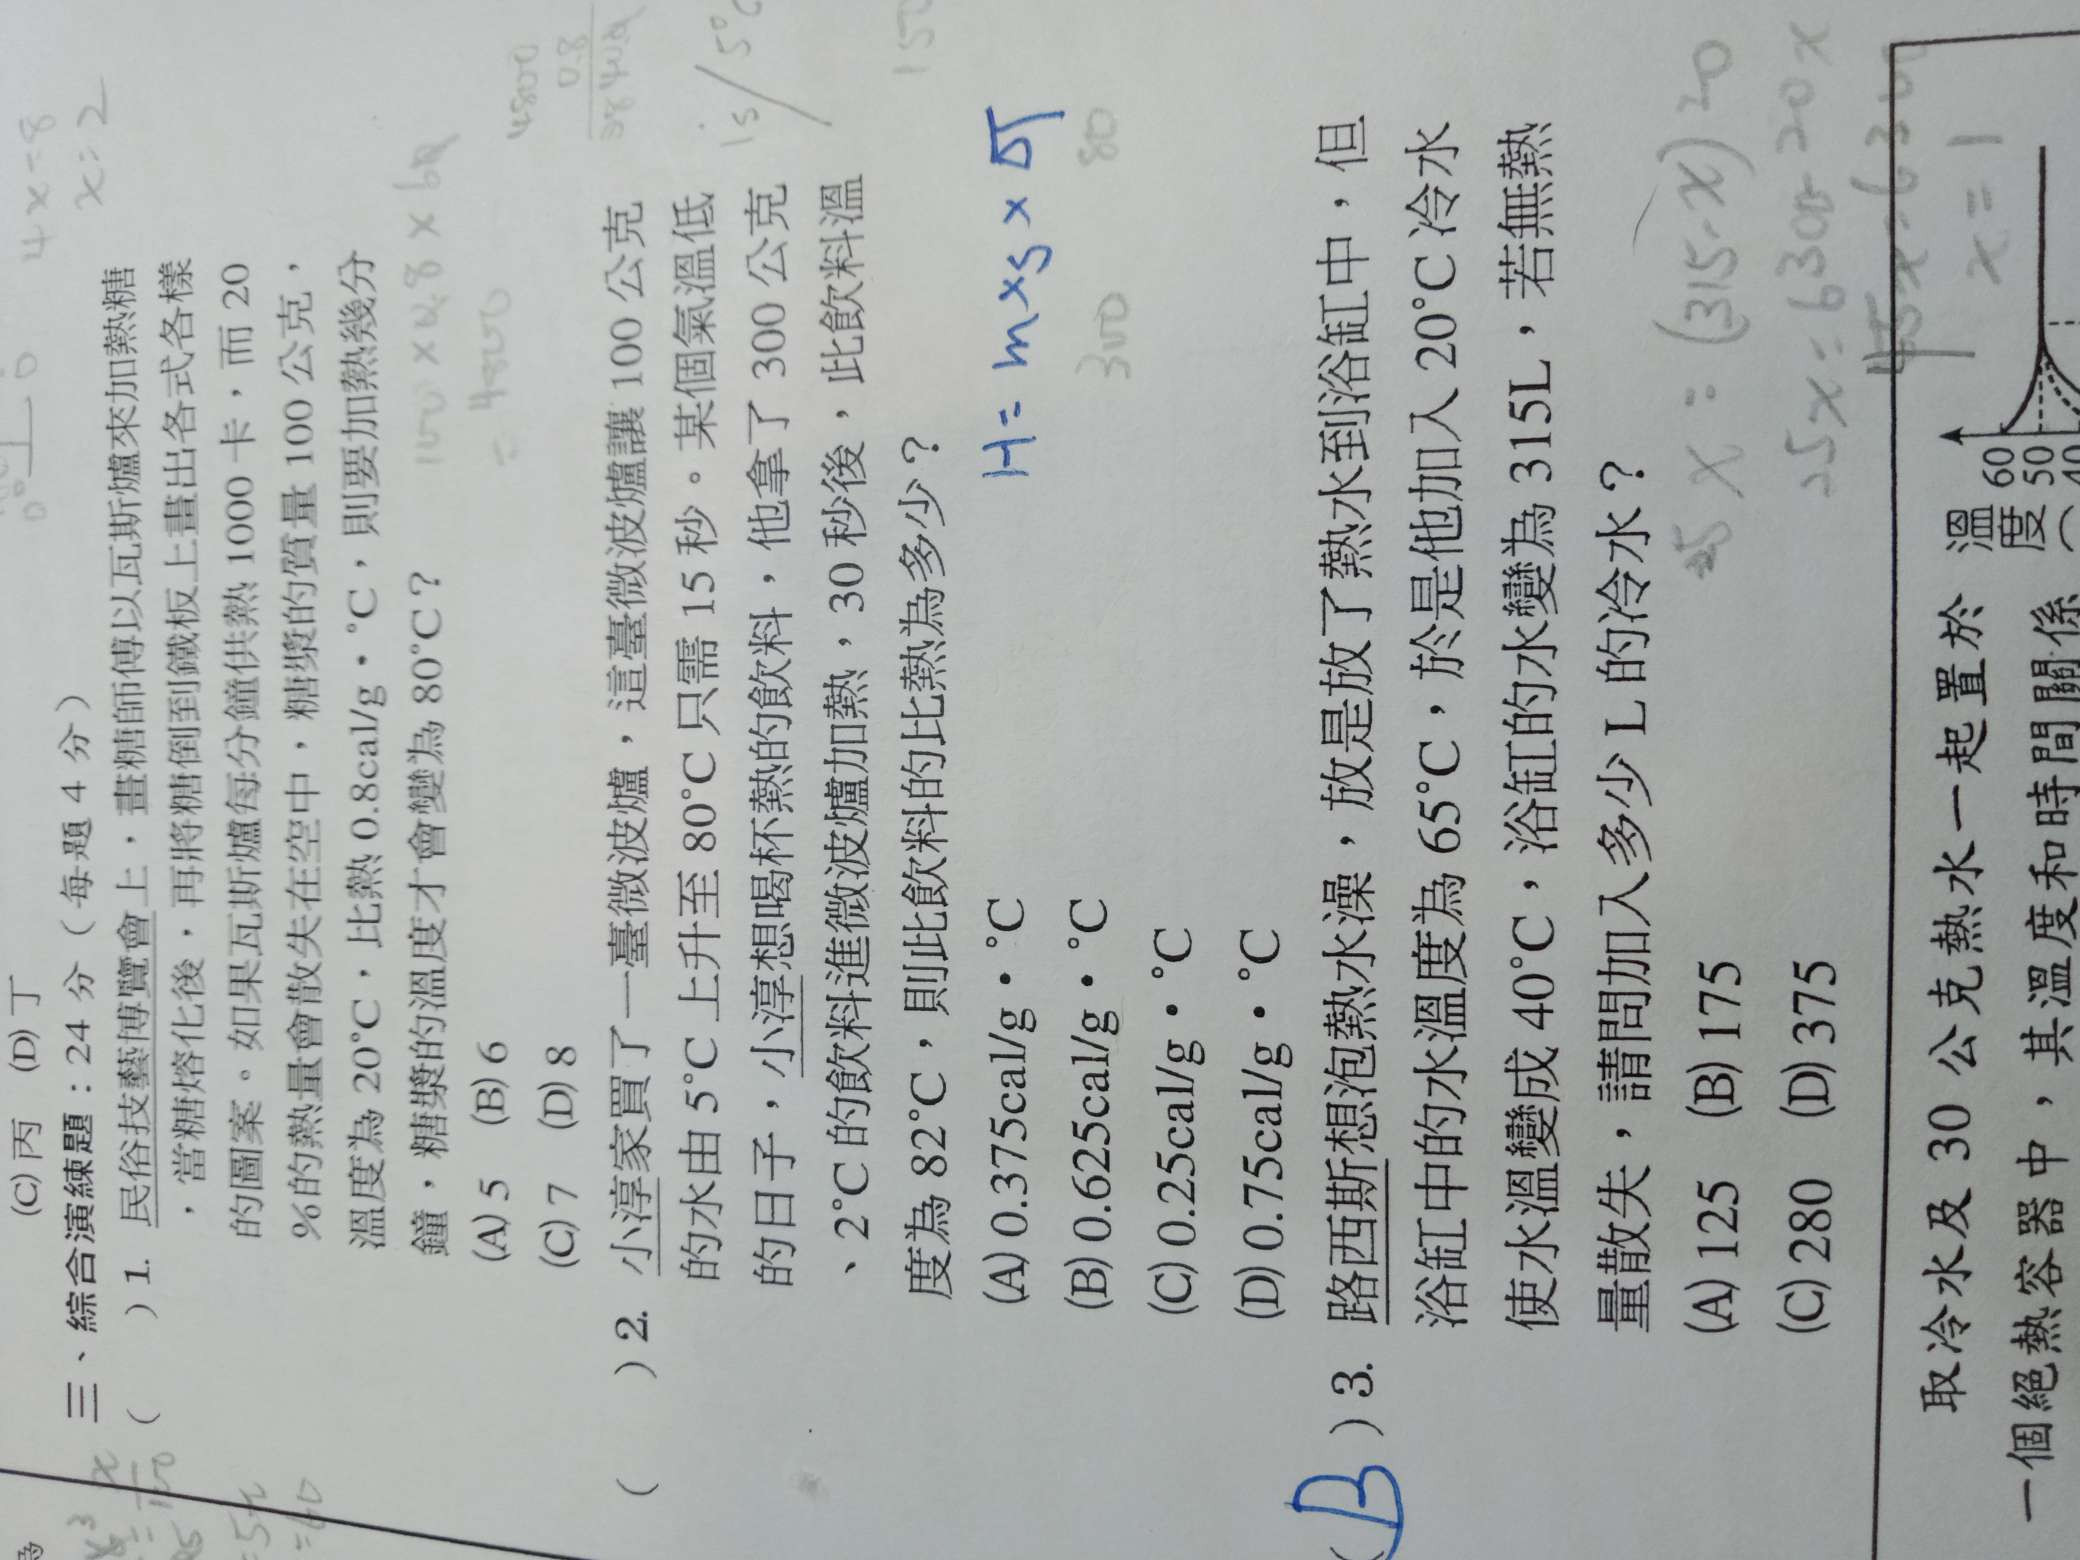 (C)丙 (D)丁
三、綜合演練題：24 分（每題 4 分）
( )1. 民俗技藝博覽會上，畫糖師傅以瓦斯爐來加熱糖
，當糖熔化後，再將糖倒到鐵板上畫出各式各樣
的圖案。如果瓦斯爐每分鐘供熱 1000 卡，而 20
%的熱量會散失在空中，糖漿的質量 100 公克，
溫度為 20°C，比熱 0.8cal/g·°C，則要加熱幾分
鐘，糖漿的溫度才會變為 80°C？
(A)5 (B)6
(C)7 (D)8
( )2. 小淳家買了一臺微波爐，這臺微波爐讓 100 公克
的水由 5°C 上升至 80°C 只需 15 秒。某個氣溫低
的日子，小淳想喝杯熱的飲料，他拿了 300 公克
、2°C 的飲料進微波爐加熱，30 秒後，此飲料溫
度為 82°C，則此飲料的比熱為多少？
(A)0.375cal/g·°C
(B)0.625cal/g·°C
(C)0.25cal/g·°C
(D)0.75cal/g·°C
H=m×s×ΔT
300 80
(B)3. 路西斯想泡熱水澡，放是放了熱水到浴缸中，但
浴缸中的水溫度為 65°C，於是他加入 20°C 冷水
使水溫變成 40°C，浴缸的水變為 315L，若無熱
量散失，請問加入多少 L 的冷水？
(A)125 (B)175
(C)280 (D)375
x=(315-x)20
25x=6300-20x
45x=630
x=1
取冷水及 30 公克熱水一起置於
一個絕熱容器中，其溫度和時間關係
溫
度
60
50
40
4x=8
x=2
4800
0.8
=4800
150